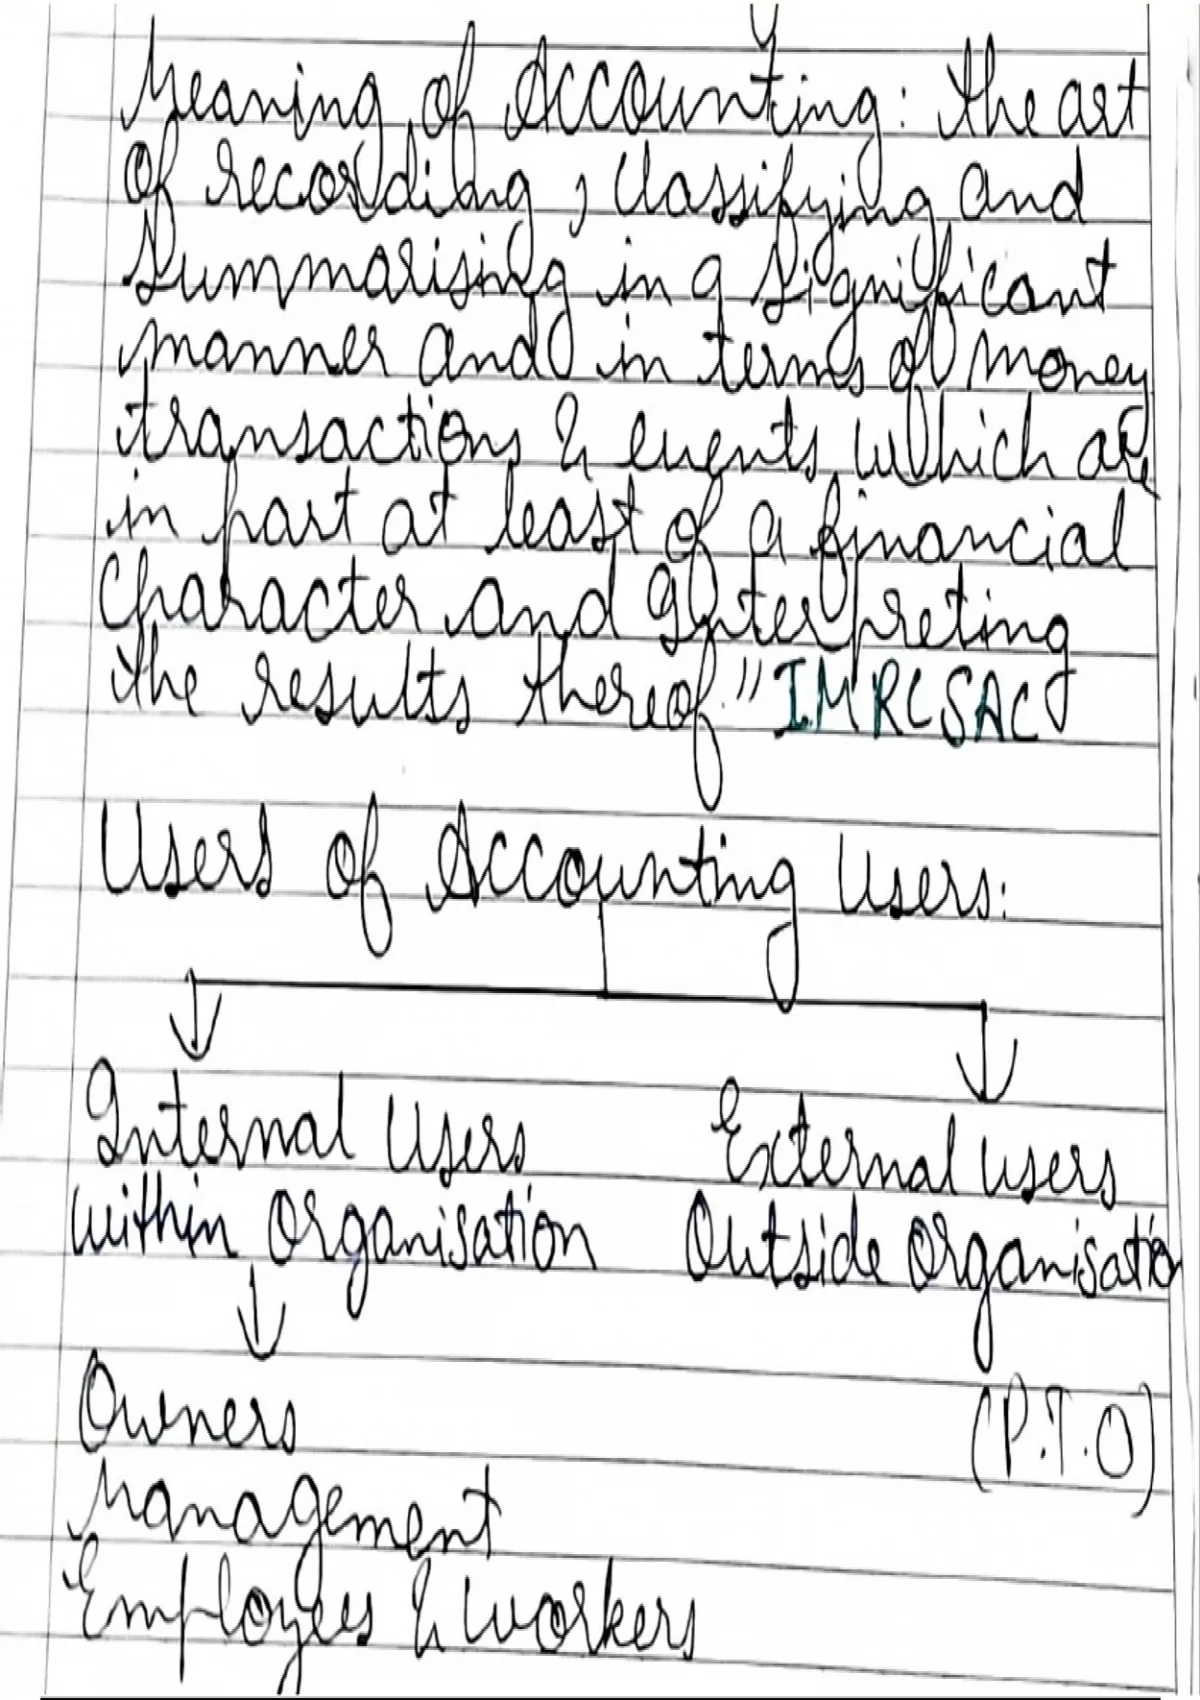 Meaning of Accounting: the art
of recording, classifying and
Summarising in a significant
manner and in terms of money
transactions & events which are
in part at least of a financial
character and Interpreting
the results thereof." IMRCSAC
Users of Accounting Users:
Internal Users External users
within organisation Outside organisation
Owners (P.T.O)
Management
Employees & workers